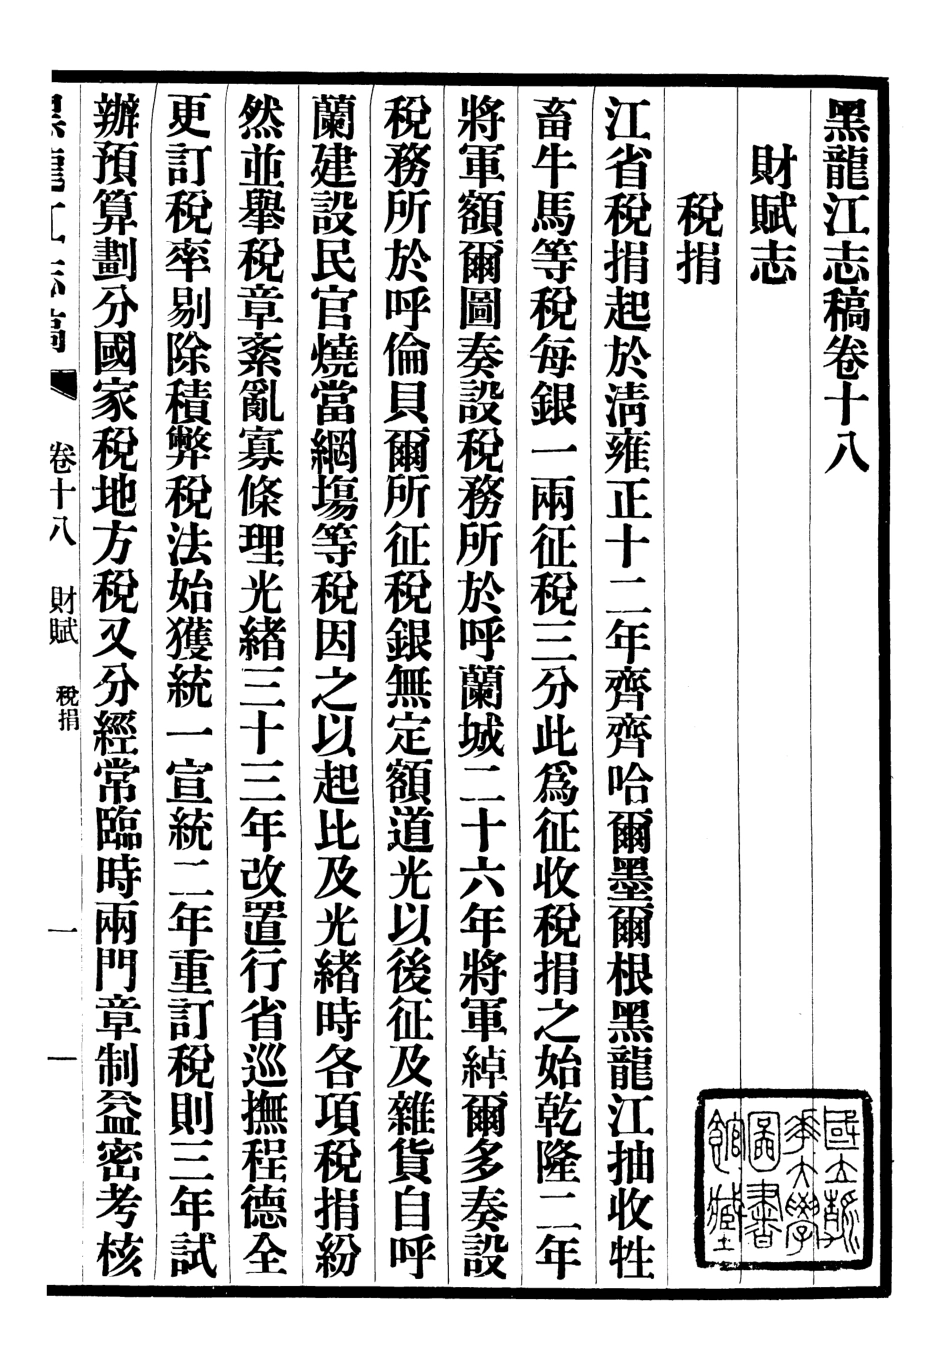 黑龍江志稿卷十八
財賦志
稅捐
江省稅捐起於淸雍正十二年齊齊哈爾墨爾根黑龍江抽收牲
畜牛馬等稅每銀一兩征稅三分此爲征收稅捐之始乾隆二年
將軍額爾圖奏設稅務所於呼蘭城二十六年將軍綽爾多奏設
稅務所於呼倫貝爾所征稅銀無定額道光以後征及雜貨自呼
蘭建設民官燒當網場等稅因之以起比及光緒時各項稅捐紛
然並舉稅章紊亂寡條理光緒三十三年改置行省巡撫程德全
更訂稅率剔除積弊稅法始獲統一宣統二年重訂稅則三年試
辦預算劃分國家稅地方稅又分經常臨時兩門章制益密考核
黑龍江志稿 卷十八 財賦 稅捐 一 一
國立清華大學圖書館藏